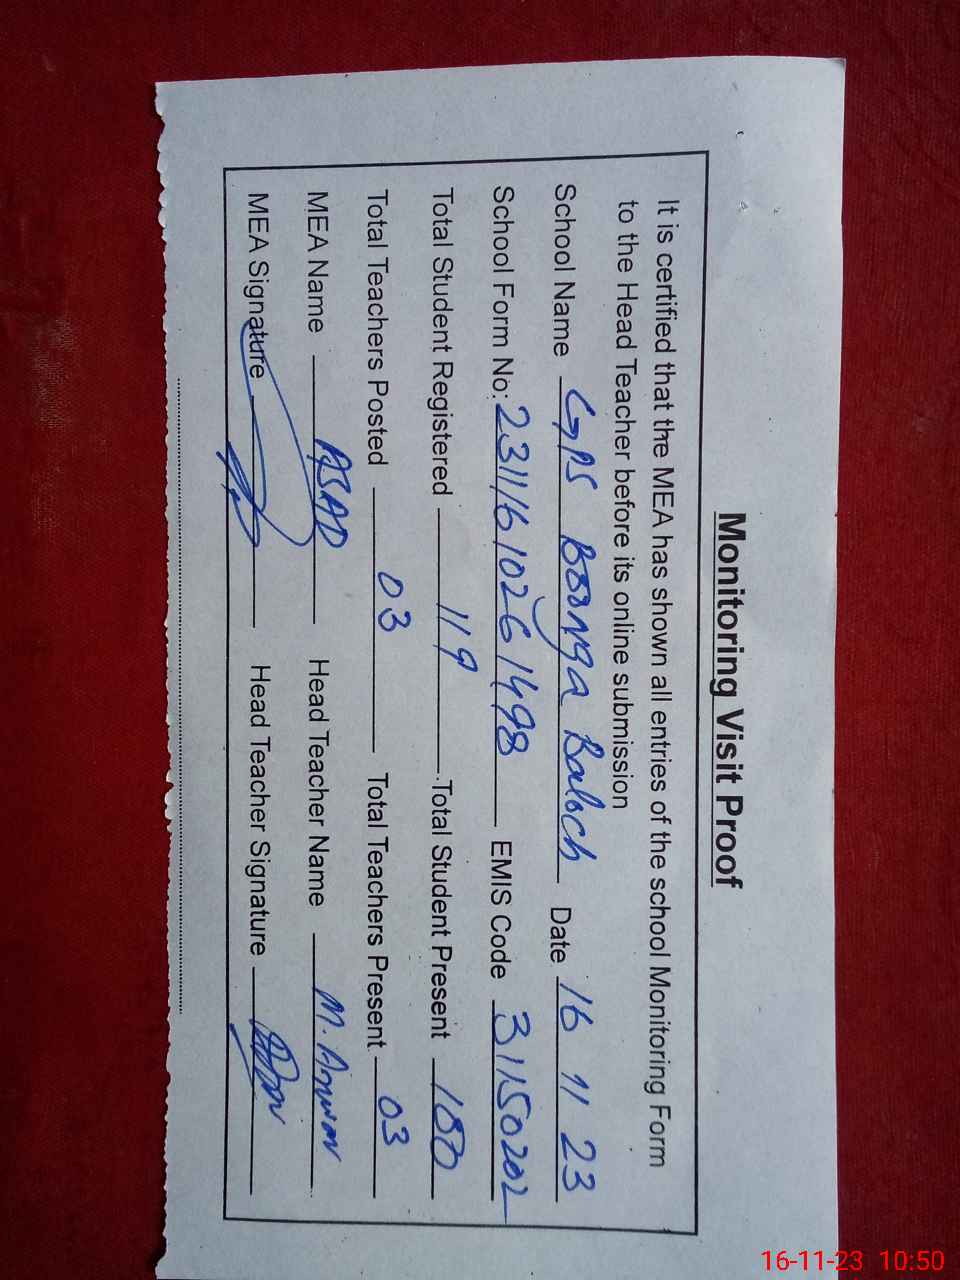 Monitoring Visit Proof
It is certified that the MEA has shown all entries of the school Monitoring Form
to the Head Teacher before its online submission
School Name GPS Boonga Baloch Date 16 11 23
School Form No: 23111610261498 EMIS Code 31150202
Total Student Registered 119 Total Student Present
Total Teachers Posted 03 Total Teachers Present 03
MEA Name ASAD Head Teacher Name M. Anwar
MEA Signature Head Teacher Signature
16-11-23 10:50